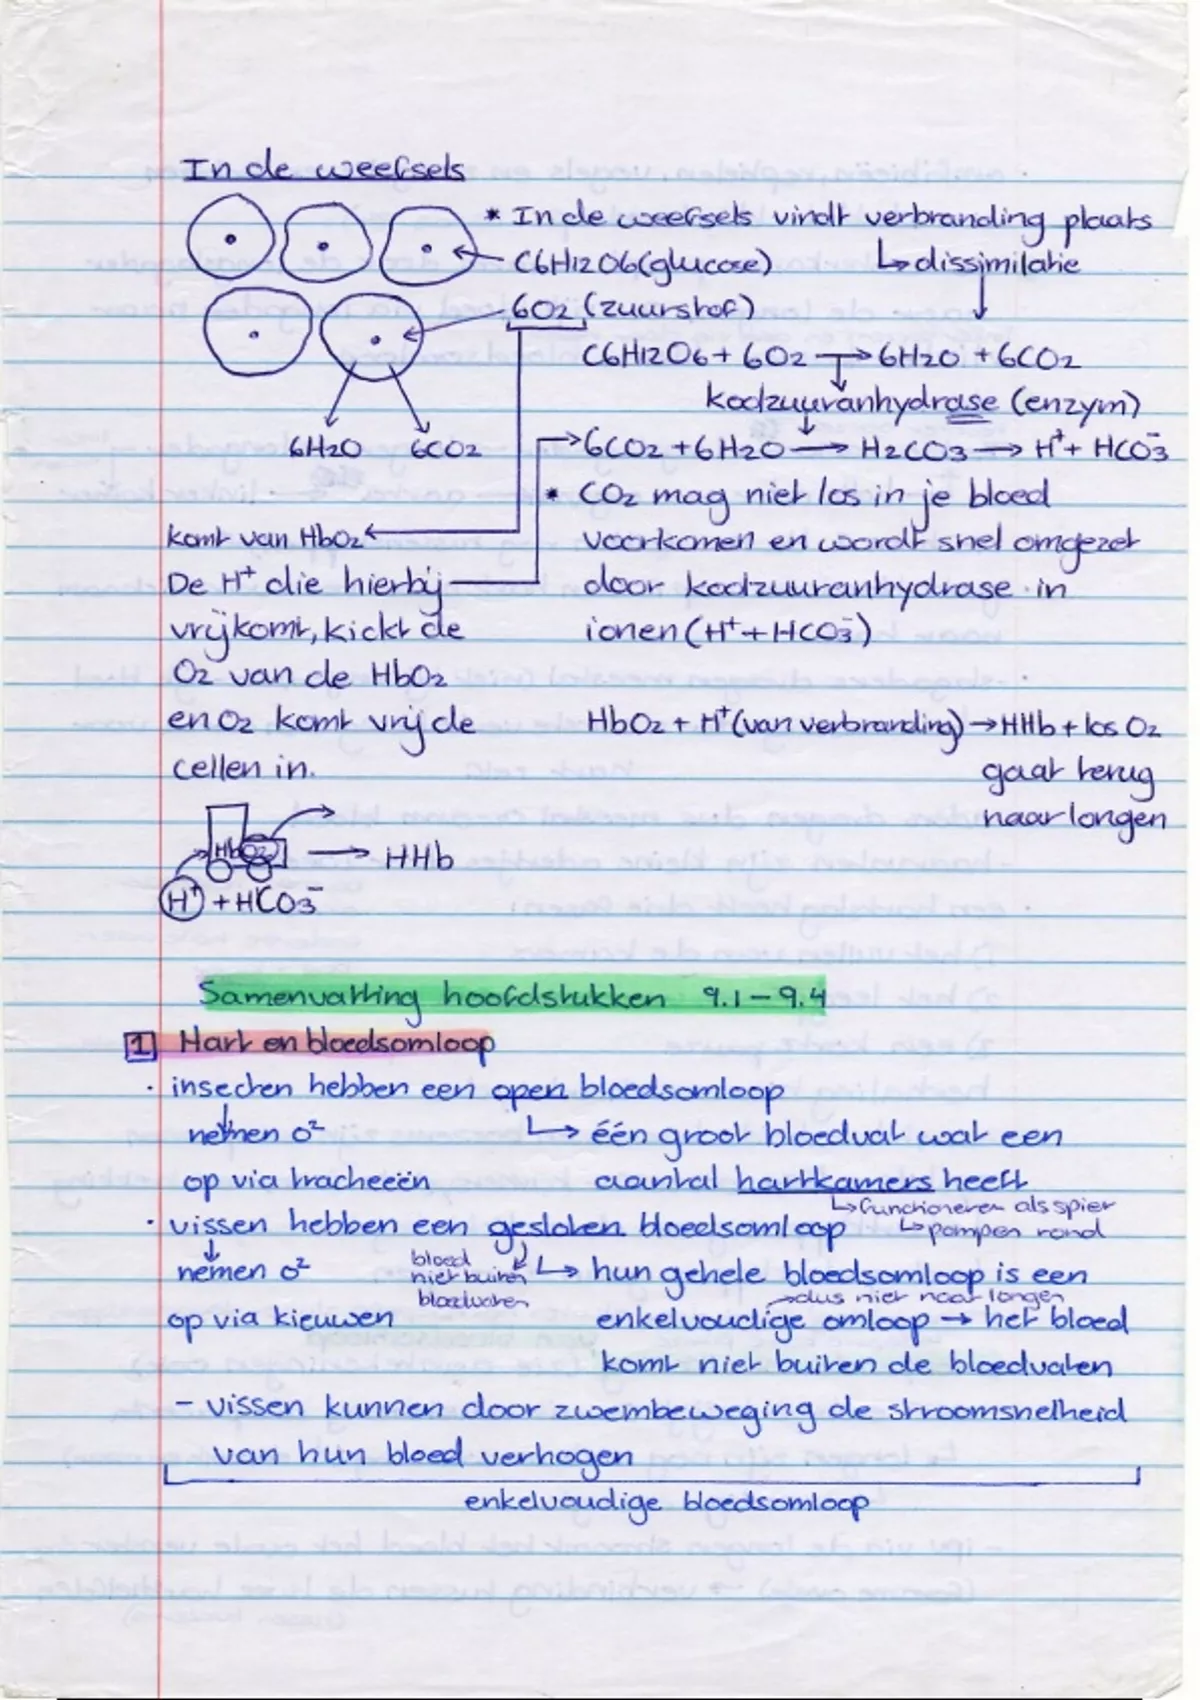 In de weefsels
* In de weefsels vindt verbranding plaats
C6H12O6 (glucose) ↳ dissimilatie
6O2 (zuurstof)
C6H12O6 + 6O2 → 6H2O + 6CO2
koolzuuranhydrase (enzym)
6H2O 6CO2
→ 6CO2 + 6H2O → H2CO3 → H⁺ + HCO3⁻
* CO2 mag niet los in je bloed
voorkomen en wordt snel omgezet
door koolzuuranhydrase in
ionen (H⁺ + HCO3⁻)
komt van HbO2
De H⁺ die hierbij
vrijkomt, kickt de
O2 van de HbO2
en O2 komt vrij de
cellen in.
HbO2 + H⁺ (van verbranding) → HHb + los O2
gaat terug
naar longen
HbO2 → HHb
H⁺ + HCO3⁻
Samenvatting hoofdstukken 9.1 - 9.4
1 Hart en bloedsomloop
· insecten hebben een open bloedsomloop
nemen o² ↳ één groot bloedvat wat een
op via tracheeën aantal hartkamers heeft
↳ functioneren als spier
· vissen hebben een gesloten bloedsomloop ↳ pompen rond
nemen o² bloed niet buiten bloedvaten ↳ hun gehele bloedsomloop is een
→ dus niet naar longen
op via kieuwen enkelvoudige omloop → het bloed
komt niet buiten de bloedvaten
- vissen kunnen door zwembeweging de stroomsnelheid
van hun bloed verhogen
enkelvoudige bloedsomloop